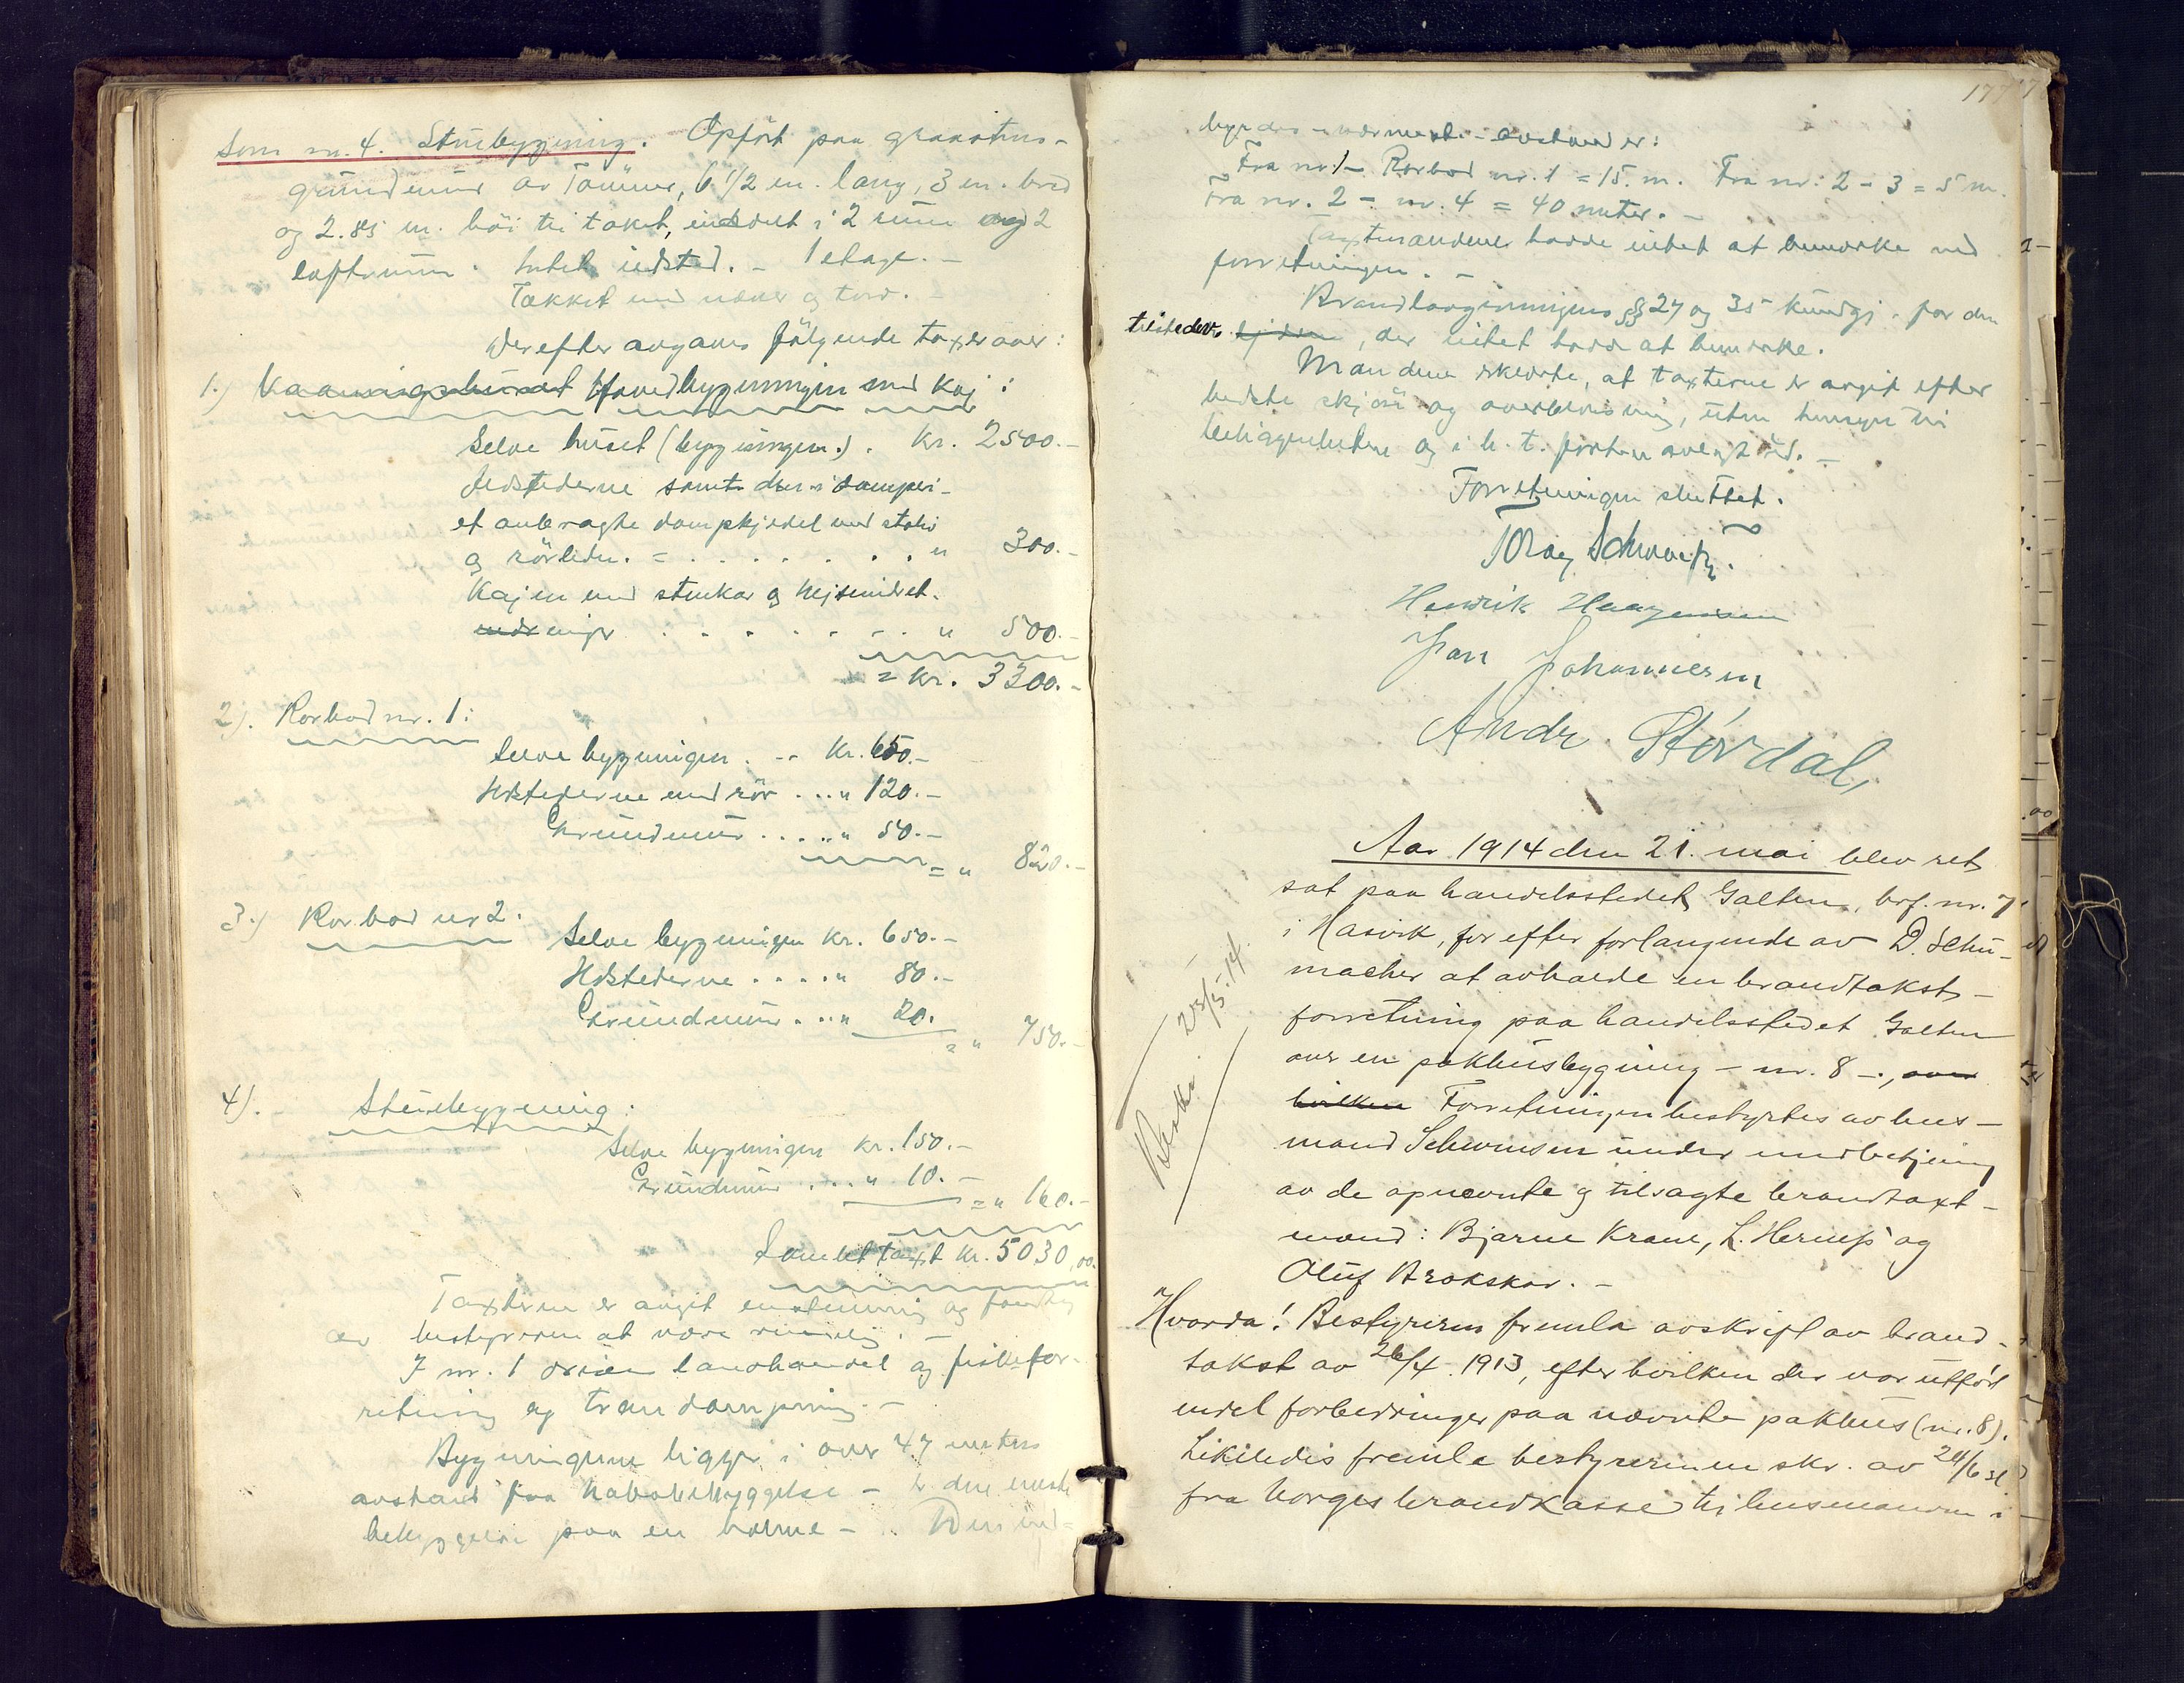 Som nr. 4. Stuebygning. Opført paa graastens-
grundmur av Tømmer, 6 1/2 m. lang, 3 m. bred
og 2.85 m. høi til taket, inddelt i 2 rum og 2
loftsrum. Intet ildsted. - 1 etage. -
Tækket med næver og torv. -
Derefter avgaves følgende taxer over:
1.) Vaaningshuset Hovedbygningen med kaj:
Selve huset (bygningen.). Kr. 2500.-
Ildstederne samt den i damperi-
et anbragte dampkjedel med stativ
og rørledn. = . . . . . . . " 300.-
Kajen med stenkar og hejseindret-
ninger . . . . . . . " 500.-
= Kr. 3300.-
2). Rorbod nr. 1:
Selve bygningen . -- Kr. 650.-
Ildstederne med rør ... " 120.-
Grundmur ..... " 50.-
= " 820.-
3.) Rorbod nr 2.
Selve bygningen Kr. 650.-
Ildstederne .... " 80.-
Grundmur .... " 20.
= " 750.-
4). - Stuebygning:
Selve bygningen Kr. 150.-
Grundmur .... " 10.-
= " 160.-
Samlet taxt Kr. 5030,00.
Taxterne er avgit enstemmig og
av bestyreren at være rimelig. -
I nr. 1 drives landhandel og fiskefor-
retning og trandampning. -
Bygningerne ligger i over 47 meters
avstand fra nabobebyggelse - er den eneste
bebyggelse paa en holme - . Den ind-
177
byrdes nærmeste avstand er:
Fra nr. 1 - Rorbod nr. 1 = 15. m. Fra nr: 2 - 3 = 5 m.
Fra nr. 2 - nr. 4 = 40 meter. -
Taxtmændene hadde intet at bemerke ved
forretningen. -
Brandlovgivningens §§ 27 og 35 kundgj. for den
tilstedev. , der intet hadde at bemerke.
Mændene erklærte, at taxterne er avgit efter
bedste skjøn og overbevisning, uten hensyn til
beliggenheten og i h. t. forten avlagt ed. -
Forretningen sluttet.
Henrik Haagensen
Johannesen
Andr. Størdal,
Aar 1914 den 21. mai blev ret
sat paa handelsstedet Galten, brf. nr. 7
i Hasvik, for efter forlangende av D. Schu-
macher at avholde en brandtakst-
forretning paa handelsstedet Galten
over en pakhusbygning - nr. 8 -, over
hvilken Forretningen bestyrtes av lens-
mand Schwensen under medbetjening
av de opnævnte og tilsagte brandtaxt-
mænd: Bjarne Krane, L. Hernes og
Oluf Brokskar. -
Hvorda! Bestyreren fremla avskrift av brand-
takst av 26/4 1913, efter hvilken der var utført
endel forbedringer paa nævnte pakhus (nr. 8).
Likeledes fremla bestyreren en skr. av
fra Norges brandkasse til lensmanden i
23/5. 14.